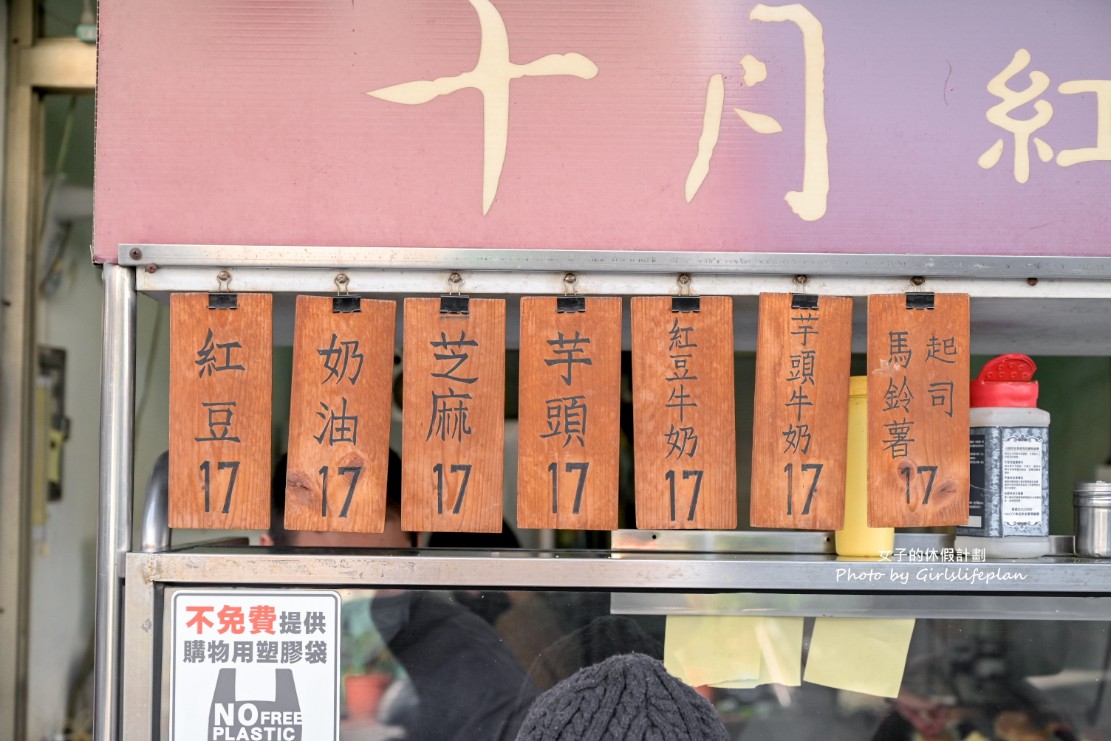 十月紅
紅豆
17
奶油
17
芝麻
17
芋頭
17
紅豆牛奶
17
芋頭牛奶
17
起司
馬鈴薯
17
女子的休假計劃
Photo by Girlslifeplan
不免費提供
購物用塑膠袋
NO FREE
PLASTIC